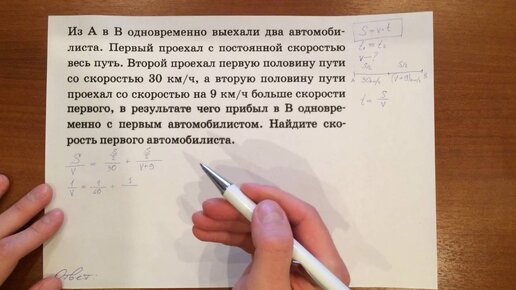 Из А в В одновременно выехали два автомоби-
листа. Первый проехал с постоянной скоростью
весь путь. Второй проехал первую половину пути
со скоростью 30 км/ч, а вторую половину пути
проехал со скоростью на 9 км/ч больше скорости
первого, в результате чего прибыл в В одновре-
менно с первым автомобилистом. Найдите ско-
рость первого автомобилиста.
S = v · t
t₁ = t₂
v — ?
S/2 S/2
A 30 км/ч (v+9) км/ч B
t = S/v
S/v = (S/2)/30 + (S/2)/(v+9)
1/v = 1/60 + 1
Ответ: